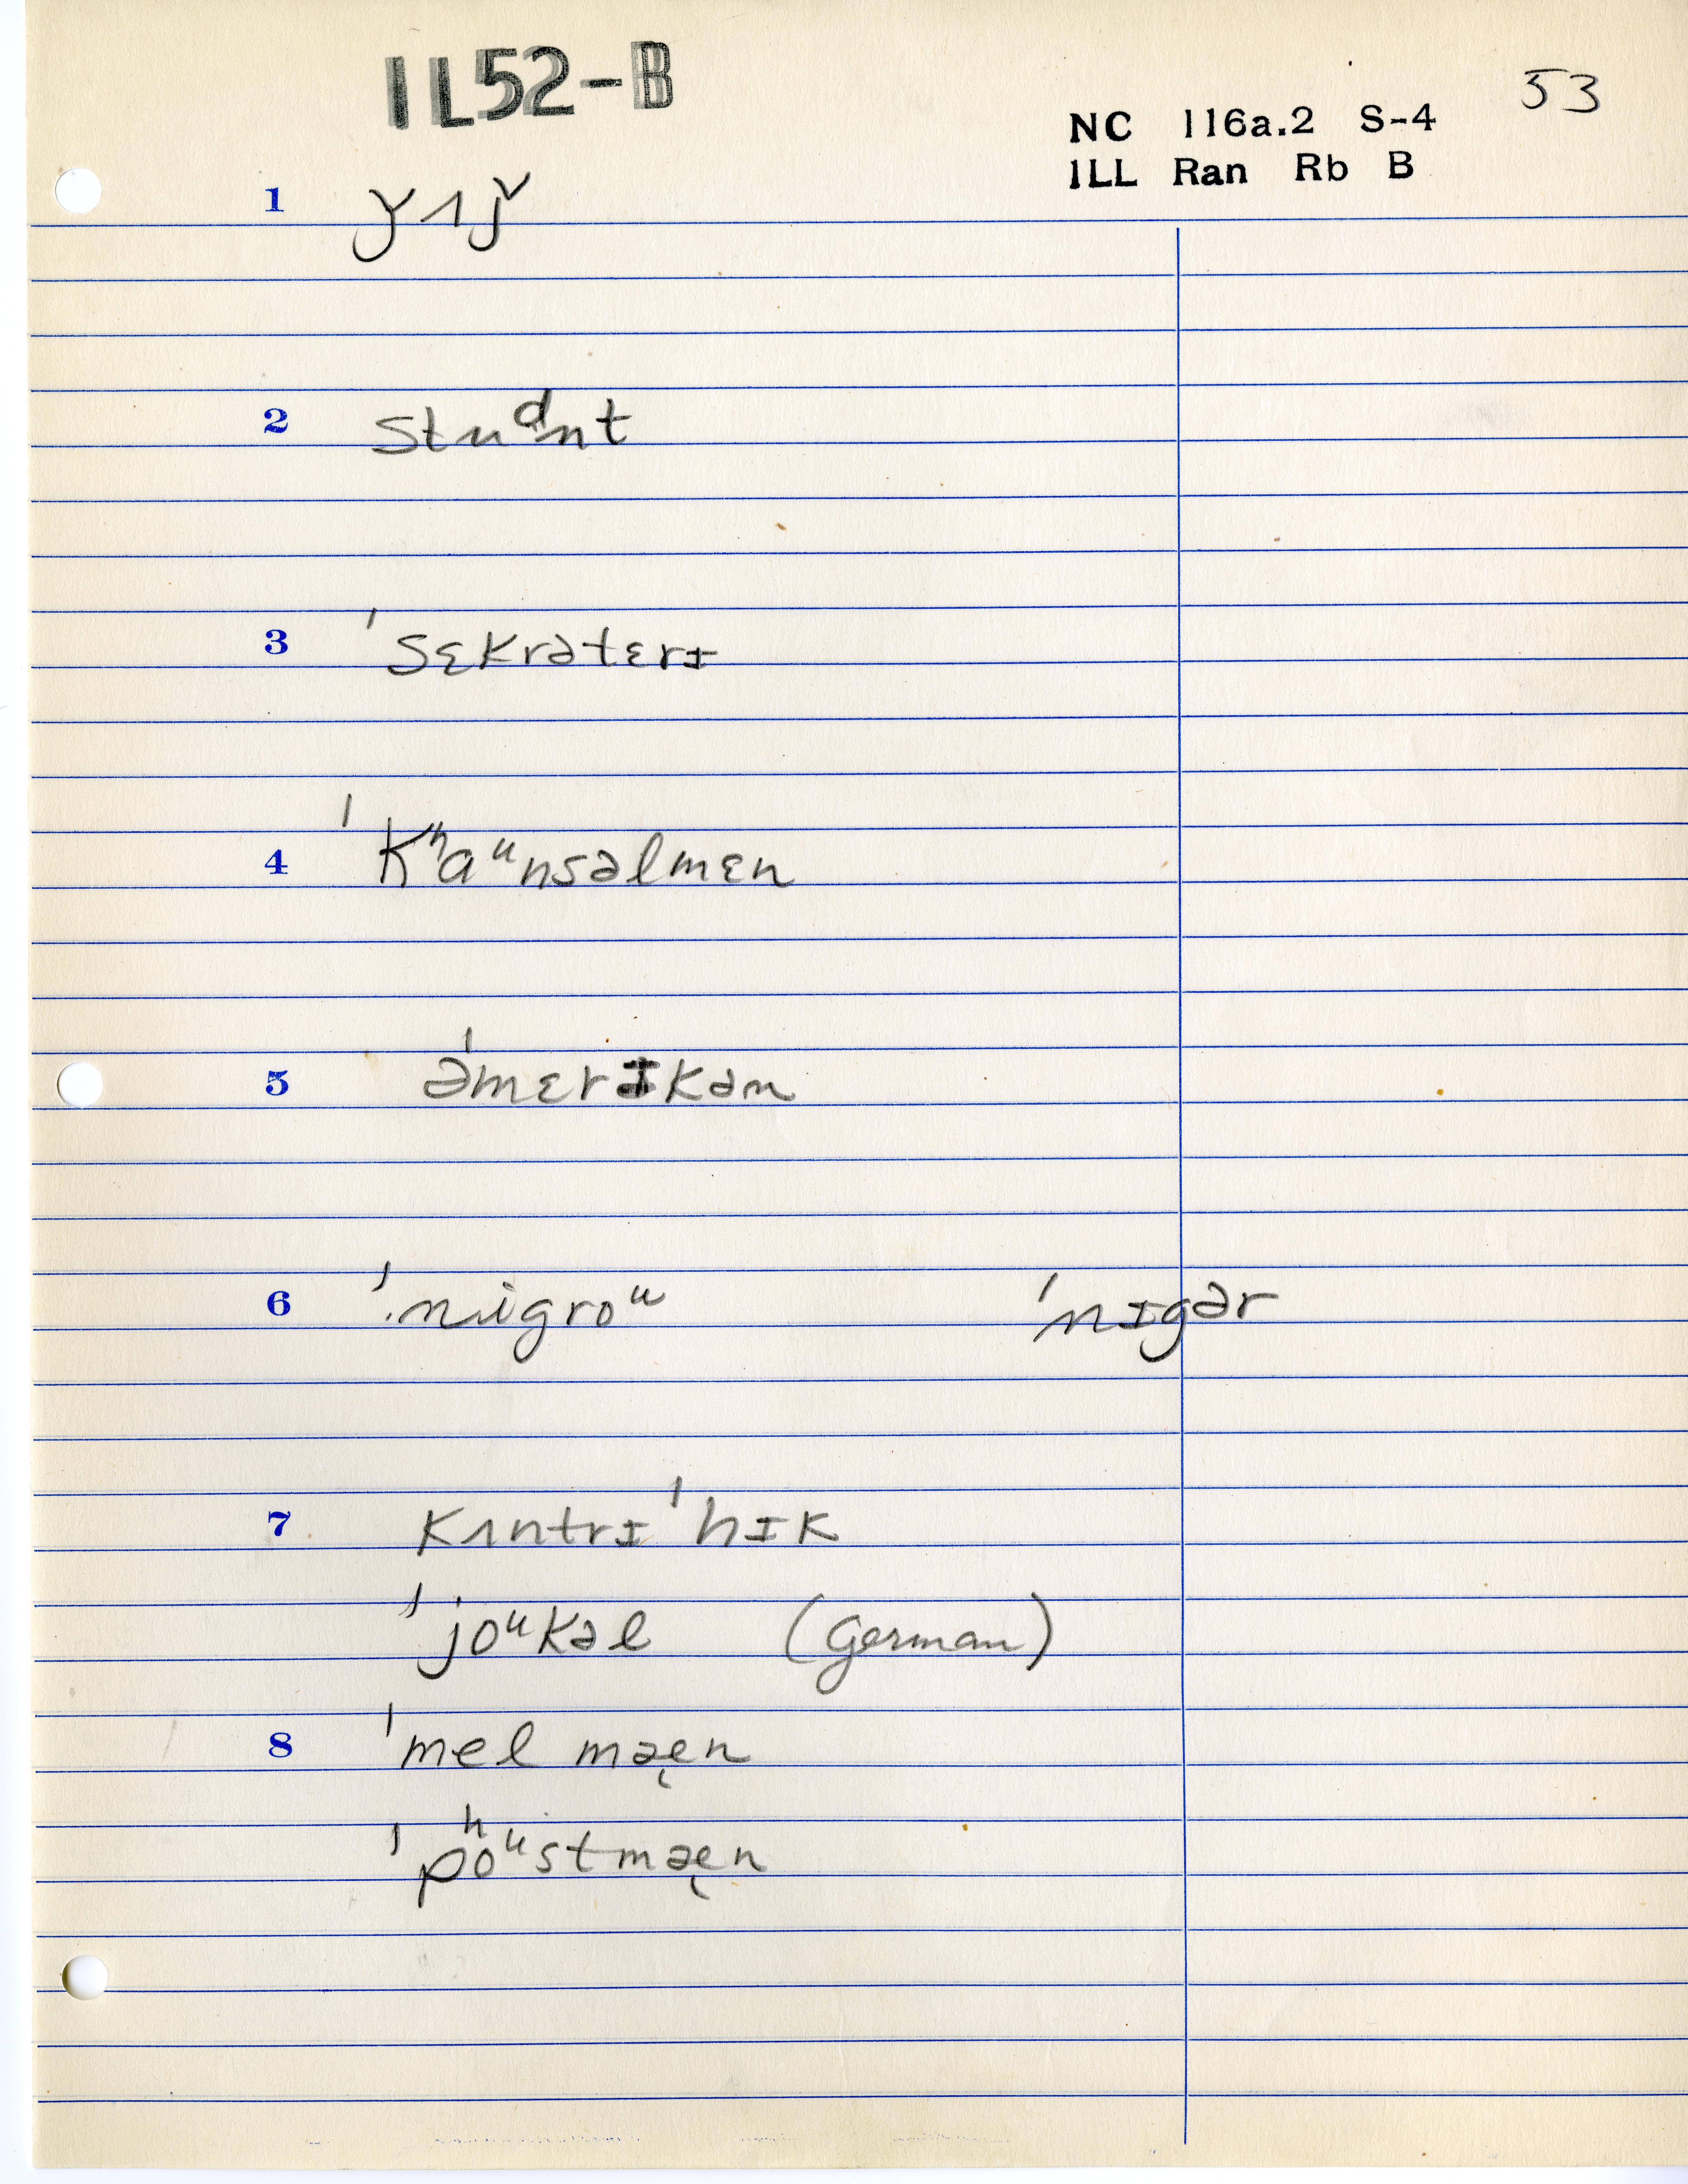 IL52-B
53
NC 116a.2 S-4
ILL Ran Rb B
1 ǰʌǰ
2 studn̩t
3 ˈsɛkrətɛrɪ
4 ˈkʰaᵘnsəlmɛn
5 əˈmɛrɪkən
6 ˈnigroᵘ ˈnɪgər
7 kʌntrɪˈhɪk
ˈjoᵘkəl (German)
8 ˈmel mæ̨n
ˈpʰoᵘstmæ̨n